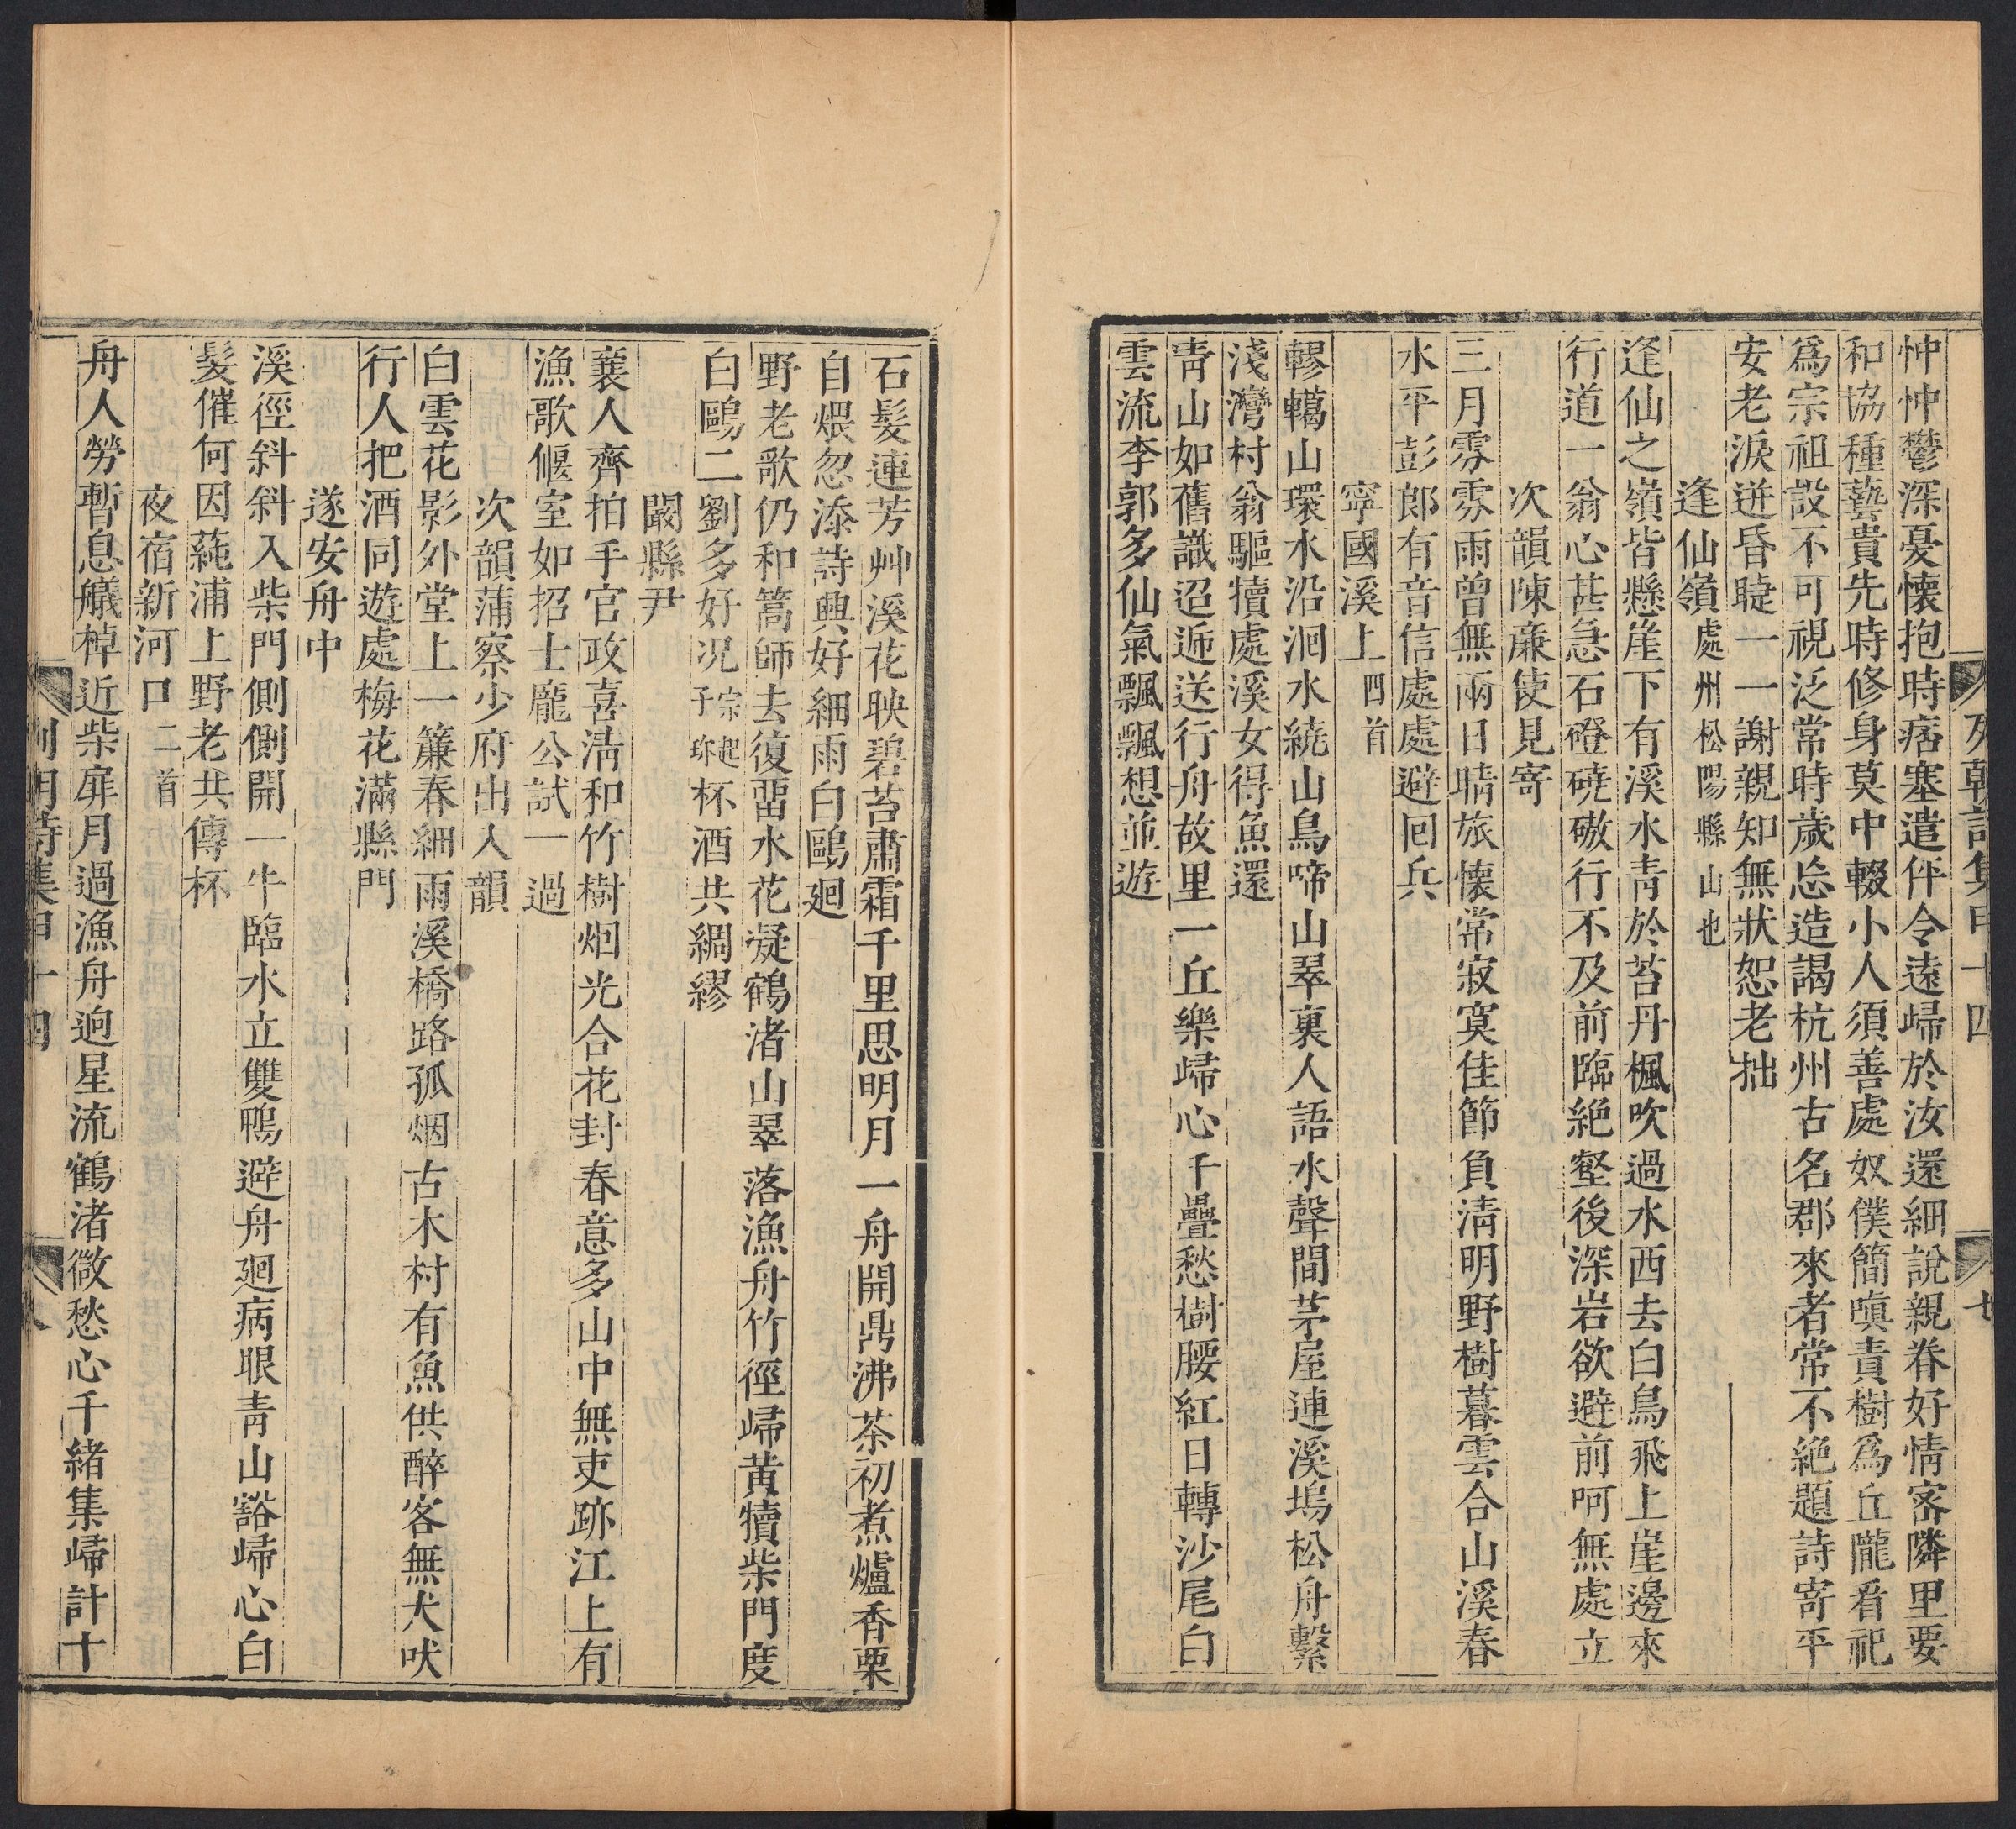 列朝詩集甲十四
七
忡忡鬱深憂懷抱時痞塞遣伻令遠歸於汝還細說親眷好情密隣里要
和協種藝貴先時修身莫中輟小人須善處奴僕簡嗔責樹爲丘隴看祀
爲宗祖設不可視泛常時歲忩造謁杭州古名郡來者常不絶題詩寄平
安老淚迸昏睫一一謝親知無狀恕老拙
逢仙嶺處州松陽縣山也
逢仙之嶺皆懸崖下有溪水青於苔丹楓吹過水西去白鳥飛上崖邊來
行道一翁心甚急石磴磽磝行不及前臨絶壑後深岩欲避前呵無處立
次韻陳廉使見寄
三月雰雰雨曾無兩日晴旅懷常寂寞佳節負淸明野樹暮雲合山溪春
水平彭郎有音信處處避囘兵
寧國溪上四首
轇轕山環水沿洄水繞山鳥啼山翠裏人語水聲間茅屋連溪塢松舟繫
淺灣村翁驅犢處溪女得魚還
靑山如舊識迢遞送行舟故里一丘樂歸心千疊愁樹腰紅日轉沙尾白
雲流李郭多仙氣飄飄想並遊
石髮連芳艸溪花映碧苔肅霜千里思明月一舟開鼎沸茶初煮爐香栗
自煨忽添詩興好細雨白鷗廻
野老歌仍和篙師去復畱水花凝鶴渚山翠落漁舟竹徑歸黃犢柴門度
白鷗二劉多好况宗起子珎杯酒共綢繆
闞縣尹
蘘人齊拍手官政喜淸和竹樹烟光合花封春意多山中無吏跡江上有
漁歌偃室如招士龐公試一過
次韻蒲察少府出入韻
白雲花影外堂上一簾春細雨溪橋路孤烟古木村有魚供醉客無犬吠
行人把酒同遊處梅花滿縣門
遂安舟中
溪徑斜斜入柴門側側開一牛臨水立雙鴨避舟廻病眼靑山豁歸心白
髮催何因蒓浦上野老共傳杯
夜宿新河口二首
舟人勞暫息艤棹近柴扉月過漁舟逈星流鶴渚微愁心千緒集歸計十
列朝詩集甲十四
八